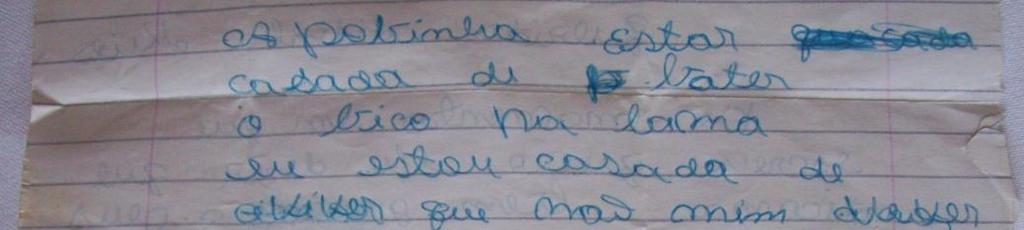 A pobinha estar
casada di bater
o bico na lama
eu estou casada de
que mao mim